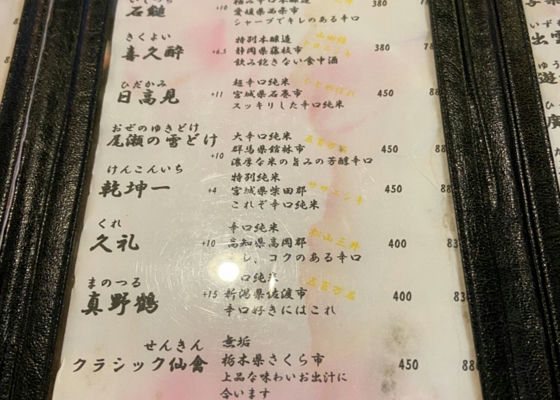 石鎚 +10 愛媛県西条市
シャープでキレのある辛口
きくよい 特別本醸造 山田錦
喜久酔 +6.5 静岡県藤枝市 380 70
飲み飽きない食中酒
ひだかみ 超辛口純米 ひとめぼれ
日高見 +11 宮城県石巻市 450
スッキリした辛口純米
おぜのゆきどけ 大辛口純米 五百万石
尾瀬の雪どけ +10 群馬県館林市 450
濃厚な米の旨みの芳醇辛口
けんこんいち 特別純米 ササニシキ
乾坤一 +4 宮城県柴田郡 450
これぞ辛口純米
くれ 辛口純米 松山三井
久礼 +10 高知県高岡郡 400 83
し、コクのある辛口
まのつる 口純米 五百万石
真野鶴 +15 新潟県佐渡市 400 83
辛口好きにはこれ
せんきん 無垢
クラシック仙禽 栃木県さくら市 450
上品な味わいお出汁に
合います